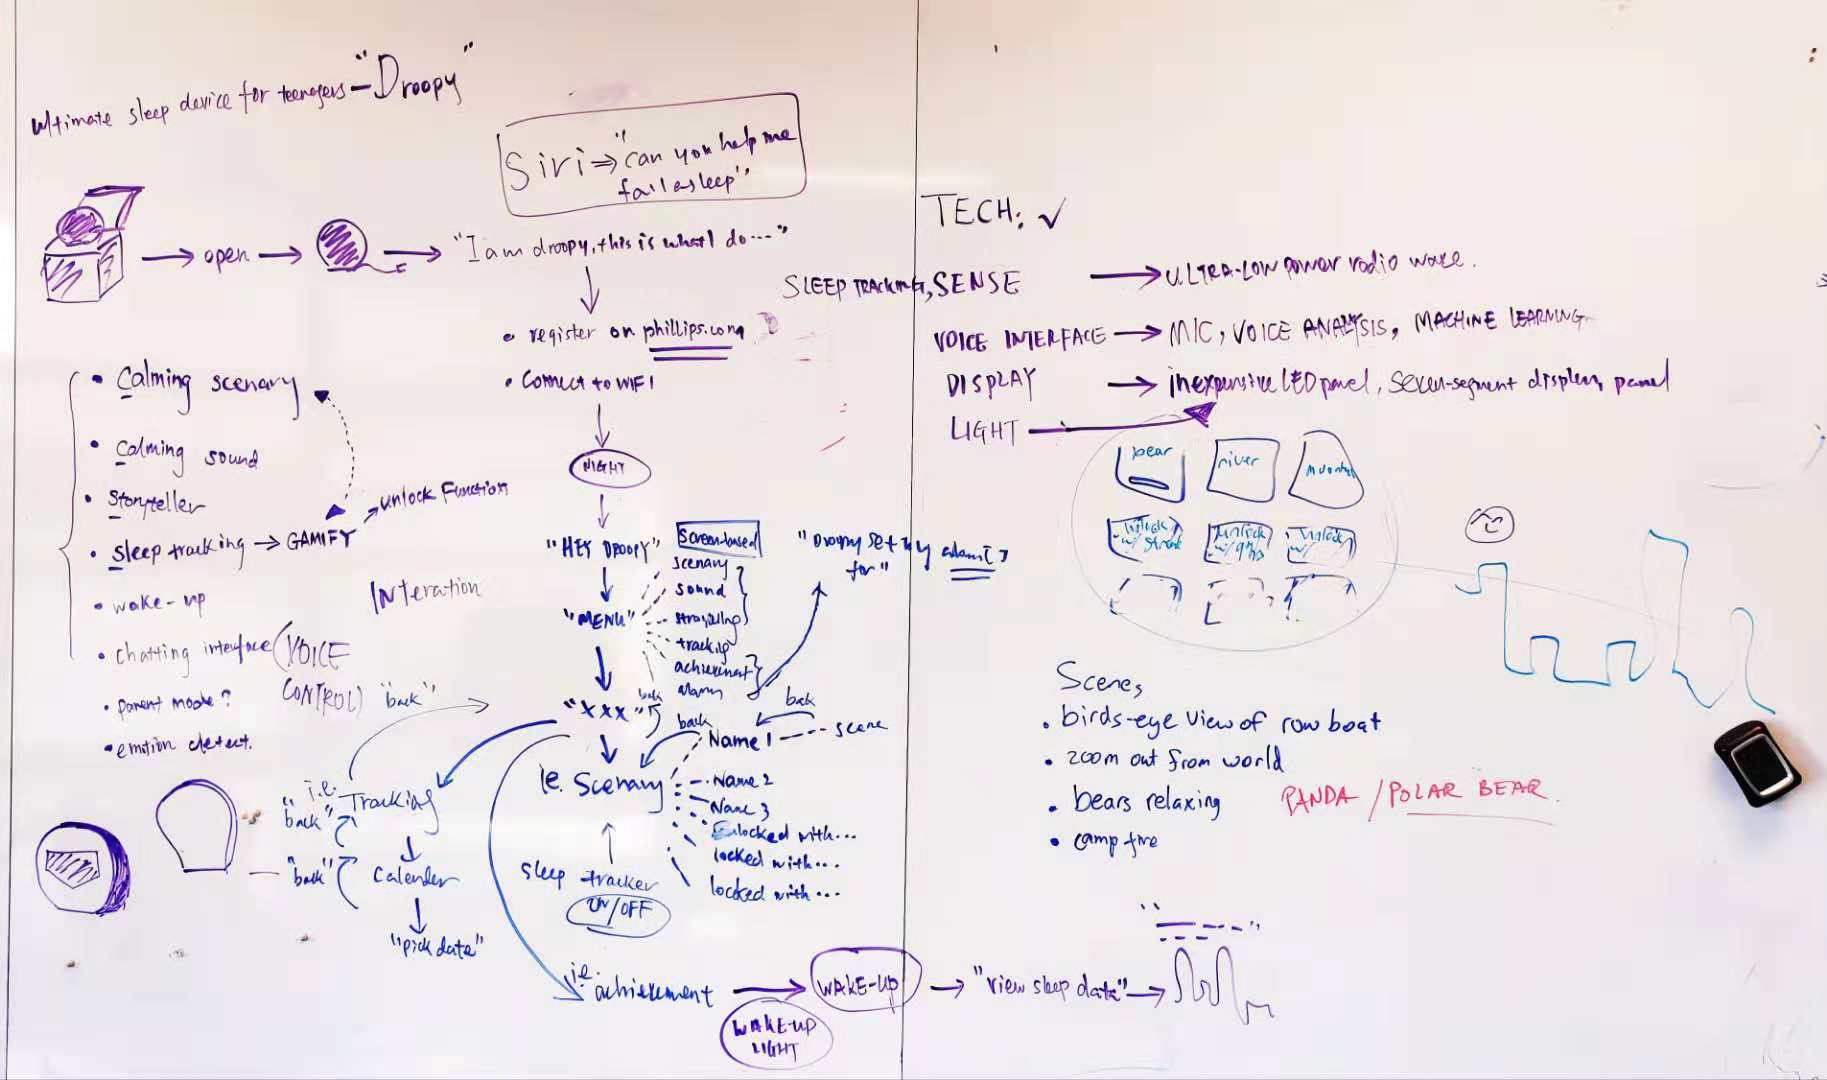 ultimate sleep device for teenagers - "Droopy"
Siri ⇒ "can you help me
fall asleep"
→ open → → "I am droopy, this is what I do ..."
• register on phillips.com
• Connect to WIFI
NIGHT
"HEY DROOPY"
"MENU"
Screen-based
scenary
sound
tracking
achievement
alarm
back
"XXX"
"Droopy set my alarm [ ]
for"
• Calming scenary
• Calming sound
• Storyteller
• Sleep tracking → GAMIFY → unlock Function
• wake-up
• chatting interface (VOICE
CONTROL)
• parent mode?
• emotion detect.
INteration
"back"
i.e. Tracking
"back"
"back"
Calender
"pick date"
back
back
Name 1 - - - scene
ie. Scenary
Name 2
Name 3
locked with...
locked with...
sleep tracker
ON/OFF
i.e.
achievement → WAKE-UP → "view sleep data" →
WAKE-UP
LIGHT
TECH: ✓
SLEEP TRACKING, SENSE → ULTRA-LOW POWER radio wave.
VOICE INTERFACE → MIC, VOICE ANALYSIS, MACHINE LEARNING
DISPLAY → inexpensive LED panel, seven-segment display panel
LIGHT
bear
river
unlock
w/
unlock
w/
unlock
w/
Scenes
• birds-eye view of row boat
• zoom out from world
• bears relaxing PANDA / POLAR BEAR.
• camp fire